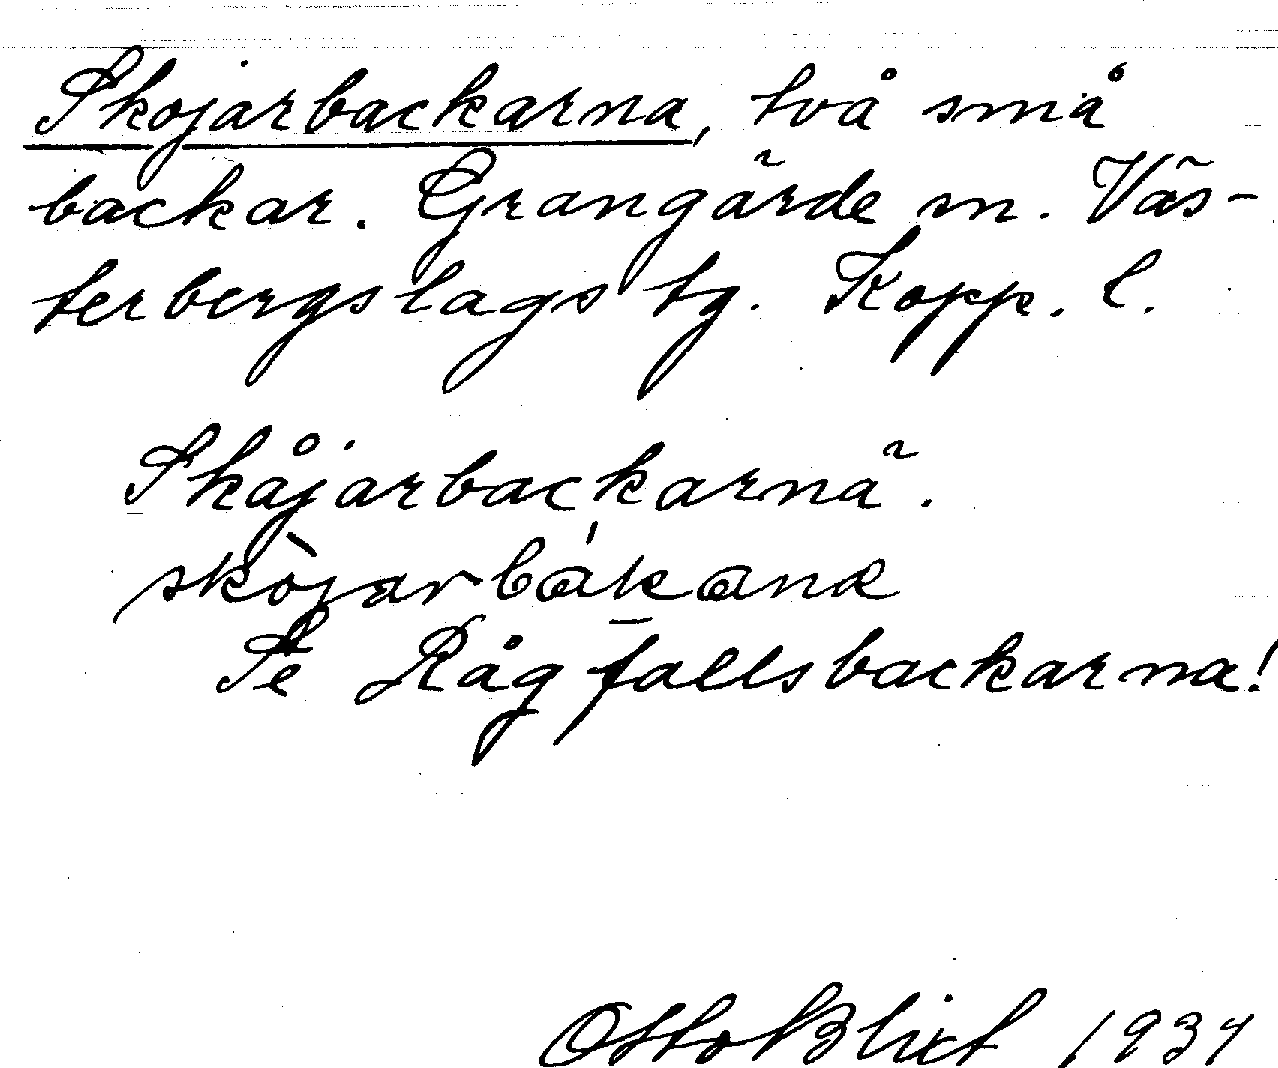 Skojarbackarna, två små
backar. Grangärde sn. Väs-
terbergslags tg. Kopp. l.
Skåjarbackarnä.
Se Rågfallsbackarna!
Otto Blixt